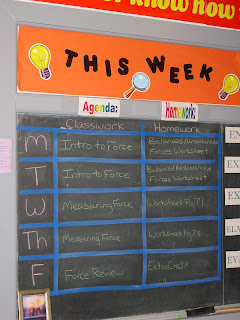 know how
THIS WEEK
Agenda: Homework:
Classwork Homework
M Intro to Force Balanced/Unbalanced
Forces Worksheet
T Intro to Force Balanced/Unbalanced
Forces Worksheet
W Measuring Force Worksheet-Pg. 71
Th Measuring Force Worksheet-Pg.
F Force Review Extra Credit
EN
EX
EX
ELA
EVA